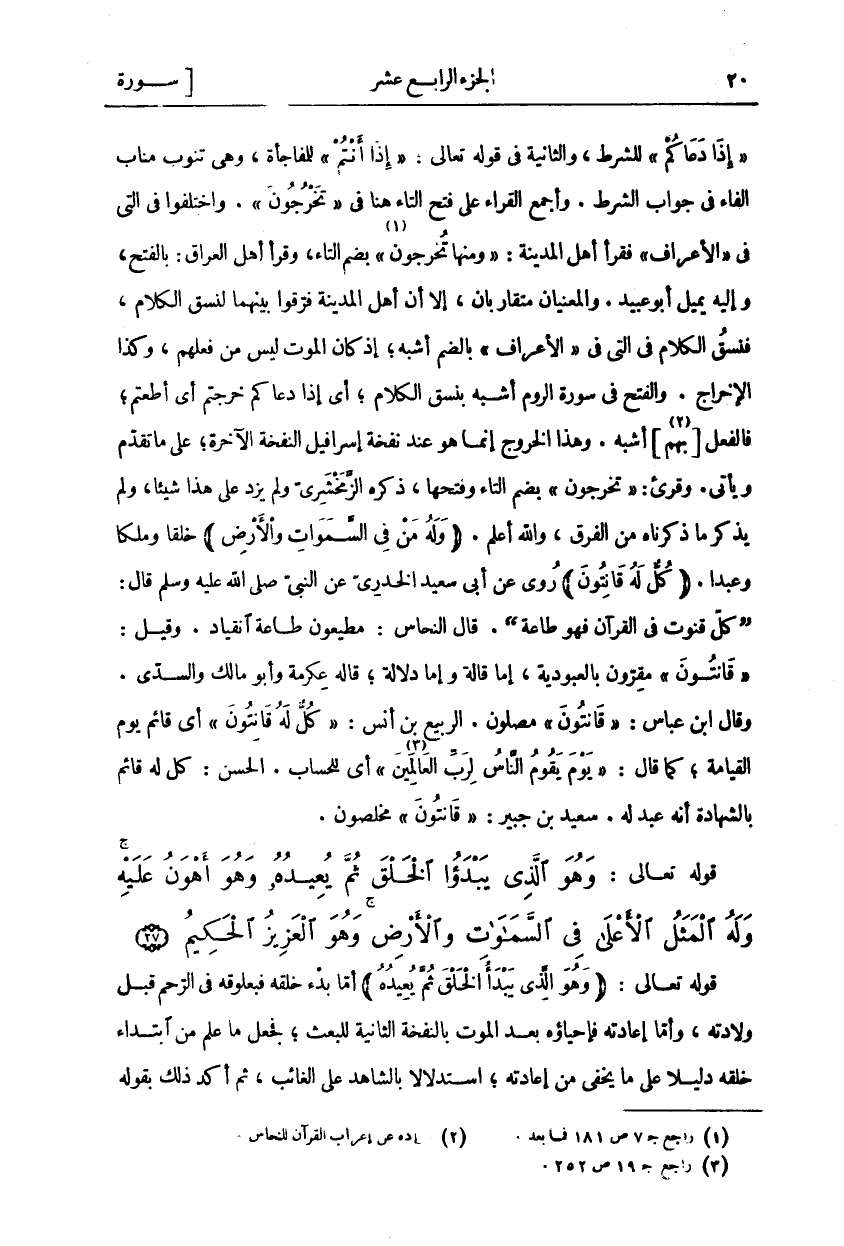 ٢٠ الجزء الرابع عشر [ ســـورة
« إِذَا دَعَاكُمْ » للشرط ، والثانية فى قوله تعالى : « إِذَا أَنْتُمْ » للفاجأة ، وهى تنوب مناب
الفاء فى جواب الشرط . وأجمع القراء على فتح التاء هنا فى « تَخْرُجُونَ » . واختلفوا فى التى
فى «الأعراف» فقرأ أهل المدينة : « ومنها تُخرجون (١) » بضم التاء، وقرأ أهل العراق : بالفتح،
وإليه يميل أبو عبيد . والمعنيان متقاربان ، إلا أن أهل المدينة فرّقوا بينهما لنسق الكلام ،
فنسقُ الكلام فى التى فى « الأعراف » بالضم أشبه؛ إذ كان الموت ليس من فعلهم ، وكذا
الإخراج . والفتح فى سورة الروم أشـبه بنسق الكلام ؛ أى إذا دعاكم خرجتم أى أطعتم؛
فالفعل [بهم (٢)] أشبه . وهذا الخروج إنمـا هو عند نفخة إسرافيل النفخة الآخرة؛ على ما تقدّم
ويأتى. وقرئ: « تخرجون » بضم التاء وفتحها ، ذكره الزَّمَخْشَرِىّ ولم يزد على هذا شيئا، ولم
يذكر ما ذكرناه من الفرق ، والله أعلم . ﴿ وَلَهُ مَنْ فِى السَّـمَوَاتِ وَالْأَرْضِ ﴾ خلقا وملكا
وعبدا . ﴿ كُلٌّ لَهُ قَانِتُونَ﴾ رُوى عن أبى سعيد الخدرىّ عن النبىّ صلى الله عليه وسلم قال :
”كلّ قنوت فى القرآن فهو طاعة“ . قال النحاس : مطيعون طـاعة ٱنقياد . وقيـل :
« قَانِتُـونَ » مقِرّون بالعبودية ، إما قالة وإما دلالة ؛ قاله عكرمة وأبو مالك والسـدّى .
وقال ابن عباس : « قَانِتُونَ» مصلون . الربيع بن أنس : « كُلٌّ لَهُ قَانِتُونَ » أى قائم يوم
القيامة ؛ كما قال : « يَوْمَ يَقُومُ النَّاسُ لِرَبِّ الْعَالَمِينَ (٣) » أى للحساب . الحسن : كل له قائم
بالشهادة أنه عبد له . سعيد بن جبير : « قَانِتُونَ » مخلصون .
قوله تعـالى : وَهُوَ ٱلَّذِى يَبْدَؤُا ٱلْخَـلْقَ ثُمَّ يُعِيـدُهُۥ وَهُوَ أَهْوَنُ عَلَيْهِ ۚ
وَلَهُ ٱلْمَثَلُ ٱلْأَعْلَىٰ فِى ٱلسَّمَـٰوَٰتِ وَٱلْأَرْضِ ۚ وَهُوَ ٱلْعَزِيزُ ٱلْحَـكِيمُ ٢٧
قوله تعـالى : ﴿ وَهُوَ الَّذِى يَبْدَأُ الْخَلْقَ ثُمَّ يُعِيدُهُ ﴾ أمّا بدْء خلقه فبعلوقه فى الرّحم قبـل
ولادته ، وأمّا إعادته فإحياؤه بعـد الموت بالنفخة الثانية للبعث ؛ فجعل ما علم من ٱبتـداء
خلقه دليـلا على ما يخفى من إعادته ؛ اسـتدلالا بالشاهد على الغائب ، ثم أكد ذلك بقوله
(١) راجع جـ ٧ ص ١٨١ فـا بعد . (٢) زيادة عن إعراب القرآن للنحاس .
(٣) راجع جـ ١٩ ص ٢٥٢ .